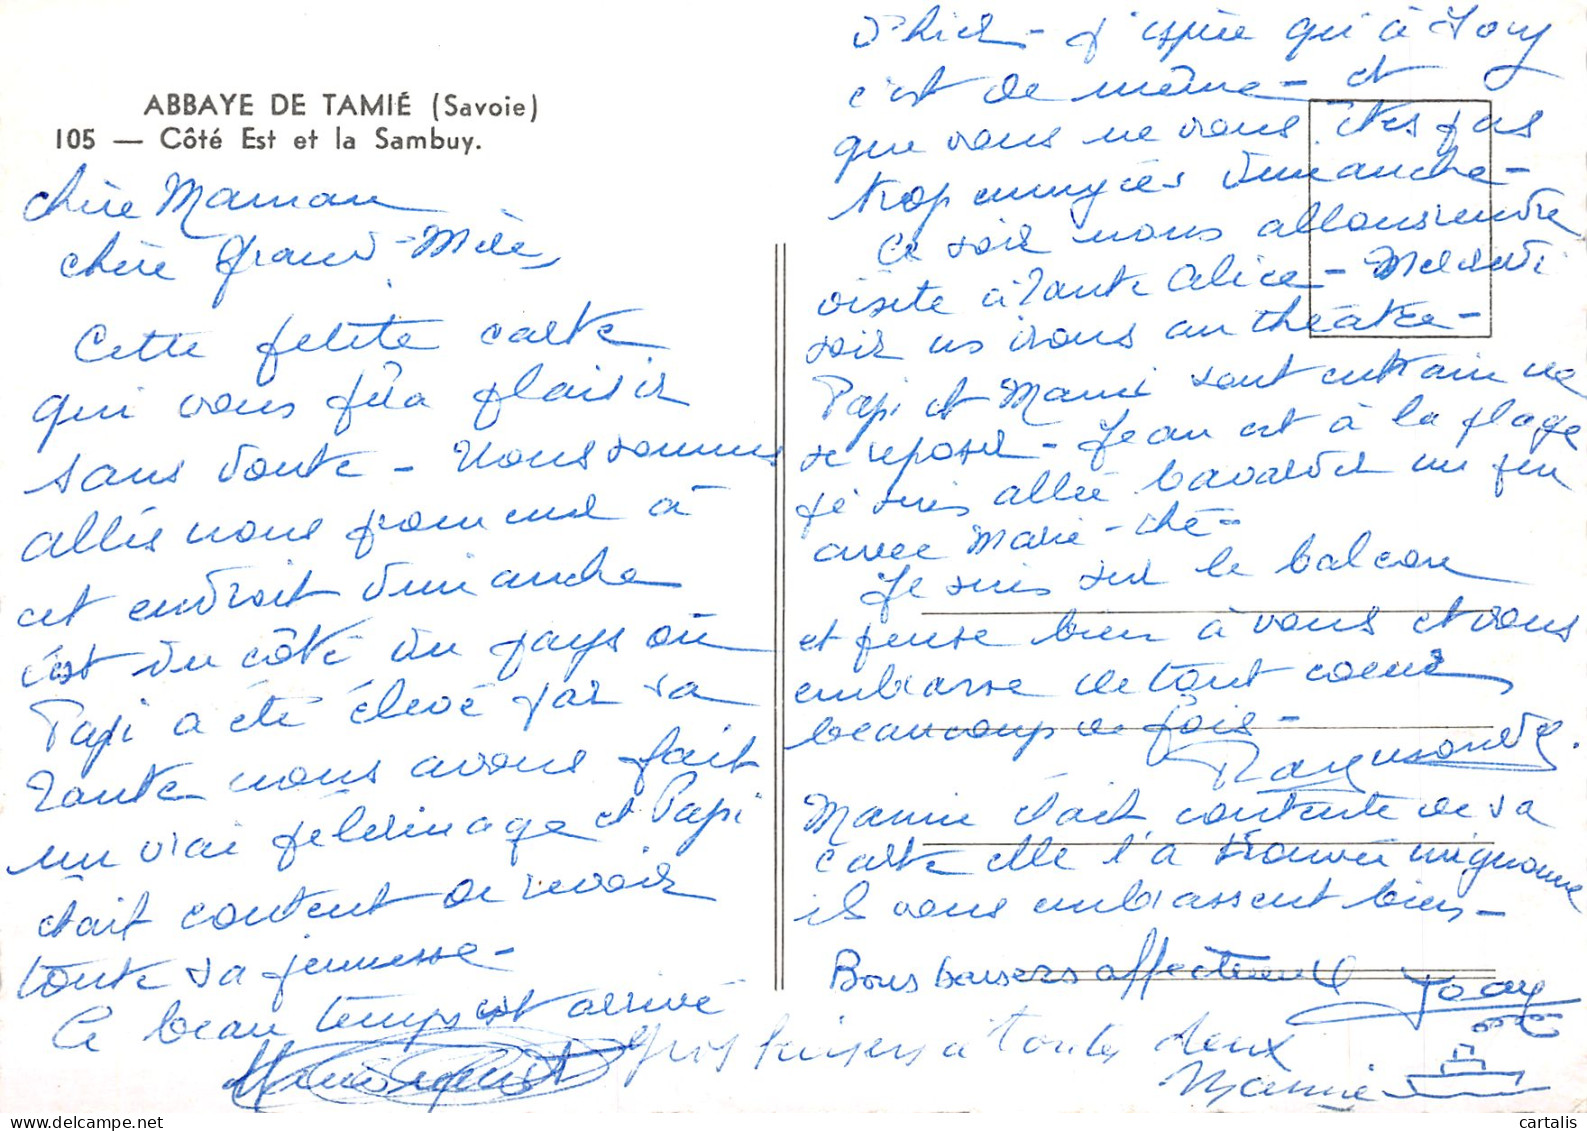 ABBAYE DE TAMIÉ (Savoie)
105 — Côté Est et la Sambuy.
chère Maman
chère Grand-Mère,
Cette petite carte
qui vous fera plaisir
sans doute - Nous sommes
allés nous promener à
cet endroit dimanche
c'est du côté du pays où
Papi a été élevé par sa
Tante nous avons fait
un vrai pélerinage et Papi
était content de revoir
toute sa jeunesse -
Ce beau temps est arrivé
d'hier - j'espère qu'à Jouy
c'est de même - et
que vous ne vous êtes pas
trop ennuyées dimanche -
Ce soir nous allons rendre
visite à Tante Alice - Mercredi
soir ns irons au théâtre -
Papi et Mami sont entrain de
se reposer - Jean est à la plage
je suis allée bavarder un peu
avec Marie-thé -
Je suis sur le balcon
et pense bien à vous et vous
embrasse de tout coeur
beaucoup de fois -
Raymonde.
Mamie était contente de sa
carte elle l'a trouvée mignonne
ils vous embrassent bien -
Bons baisers affectueux
Gros baisers à toutes deux
Mamie
cartalis